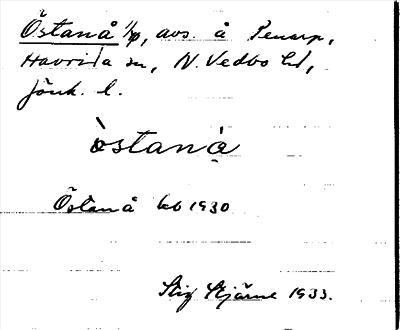 Östanå 1/4, avs. å Penarp,
Haurida sn, N. Vedbo hd,
Jönk. l.
òstanå̀
Östanå kb 1930
Stig Stjärne 1933.